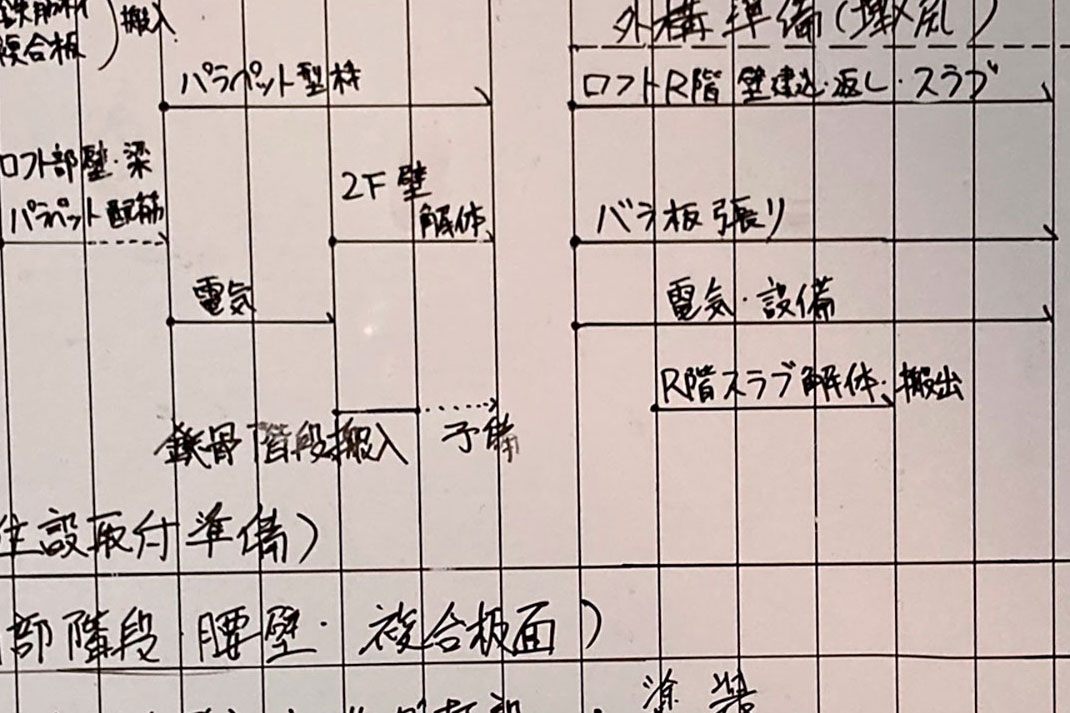 搬入
複合板)
外構準備(
パラペット型枠
ロフトR階 壁建込・返し・スラブ
ロフト部壁・梁
パラペット配筋
2F 壁
解体
バラ板張り
電気
電気・設備
R階スラブ解体・搬出
鉄骨階段搬入
予備
住設取付準備)
部階段・腰壁・複合板面)
塗装